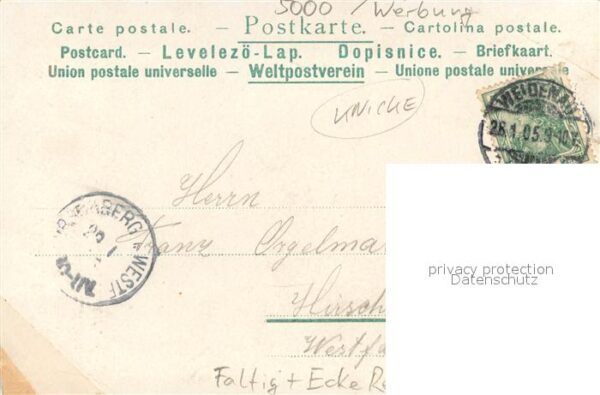 5000 / Werbung
Carte postale. — Postkarte. — Cartolina postale.
Postcard. — Levelezö-Lap. Dopisnice. — Briefkaart.
Union postale universelle — Weltpostverein — Unione postale universale
UNICHE
WEIDENAU
26.1.05.9-10V
Herrn
Franz Orgelma
WESTF
Hirsch
Westfa
privacy protection
Datenschutz
Faltig + Ecke Re